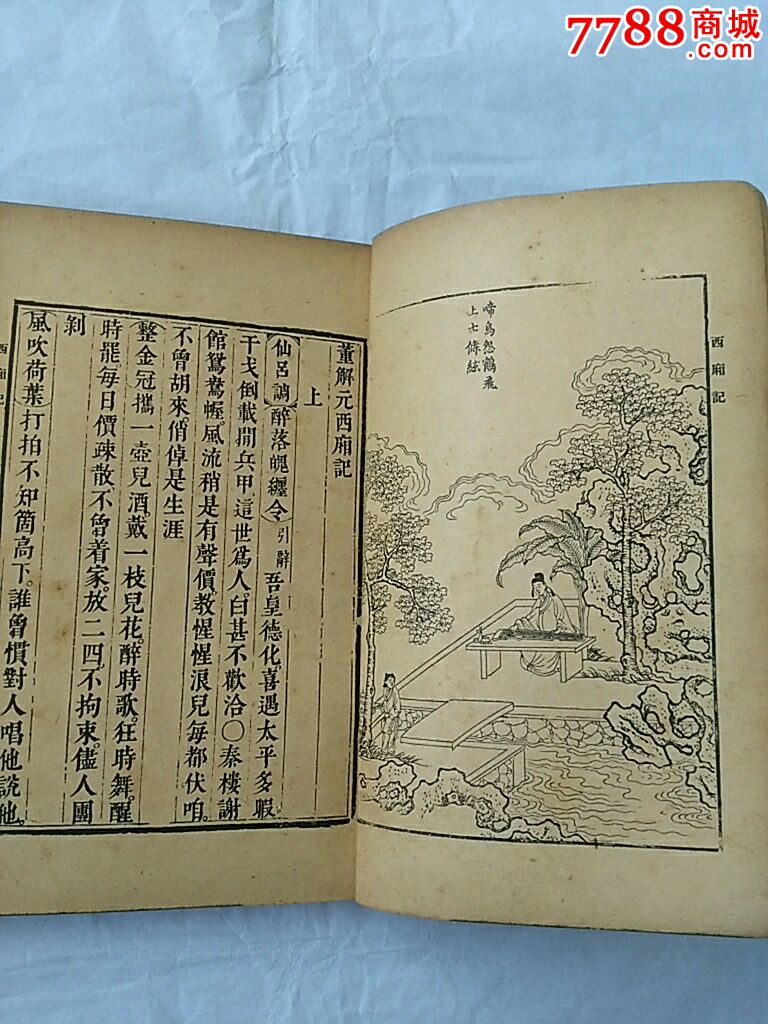 7788商城
.com
西廂記
啼鳥怨鶴飛
上七條絃
董解元西廂記
上
仙呂調 醉落魄纏令 引辭 吾皇德化。喜遇太平多暇。
干戈倒載閒兵甲。這世爲人。白甚不歡洽〇秦樓謝
館鴛鴦幄。風流稍是有聲價。教惺惺浪兒每都伏咱。
不曾胡來。俏倬是生涯
整金冠 攜一壺兒酒。戴一枝兒花。醉時歌。狂時舞。醒
時罷。每日價疎散不曾着家。放二四。不拘束。儘人團
剝
風吹荷葉 打拍不知箇高下。誰曾慣對人唱他說他。
西廂記